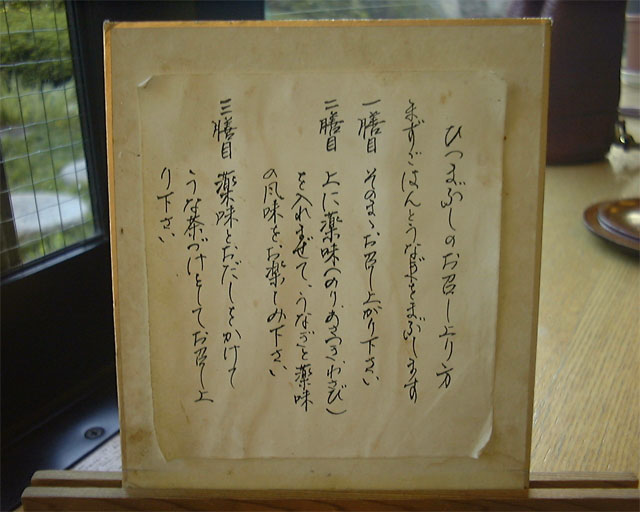 ひつまぶしのお召し上り方
まずごはんとうなぎをまぶします
一膳目 そのまゝお召し上がり下さい
二膳目 上に薬味(のり、あさつき、わさび)
を入れまぜて、うなぎと薬味
の風味をお楽しみ下さい
三膳目 薬味とおだしをかけて
うな茶づけとしてお召し上
り下さい